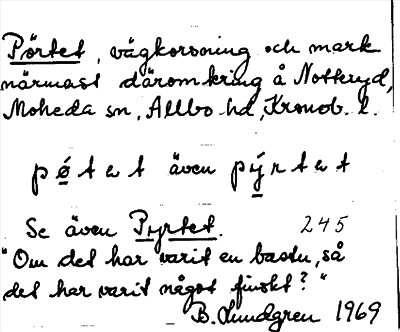 Pörtet, vägkorsning och mark
närmast däromkring å Notteryd,
Moheda sn, Allbo hd, Kronob. l.
pǿtet även pýrtet
Se även Pyrtet. 245
"Om det har varit en bastu, så
det har varit något finskt?"
B. Lundgren 1969